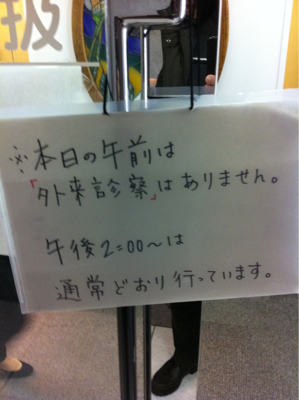 扱
※本日の午前は
「外来診察」はありません。
午後2:00~は
通常どおり行っています。